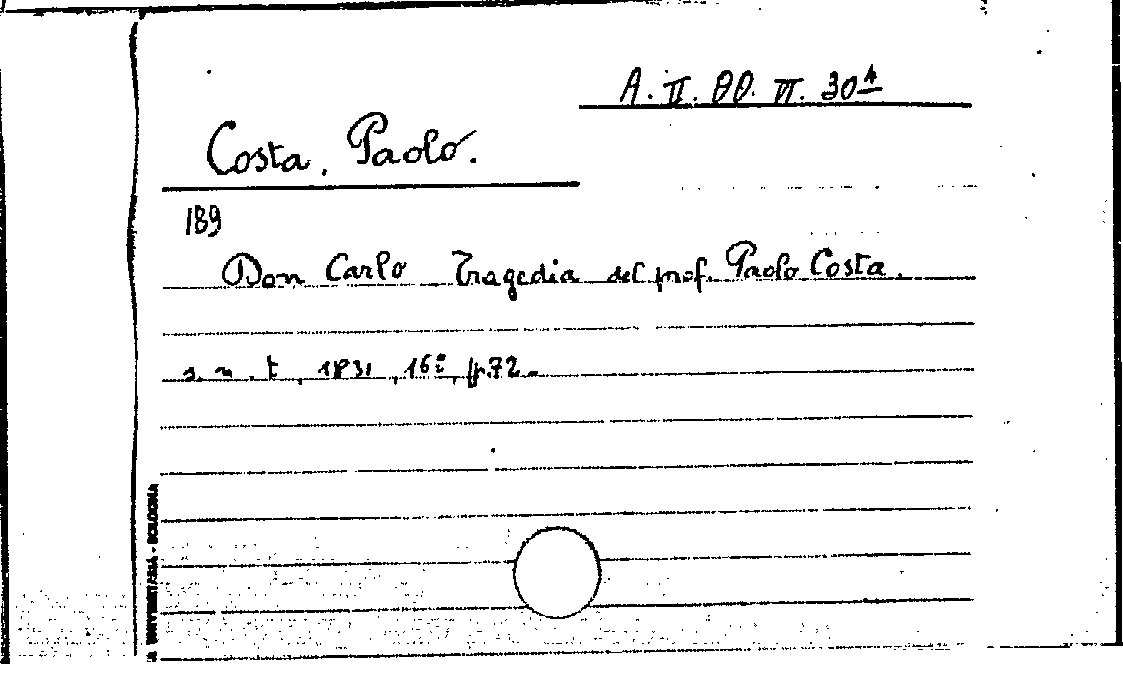 A. II. QQ. VI. 30⁴
Costa, Paolo.
189
Don Carlo Tragedia del prof. Paolo Costa.
s. n. t, 1831, 16°, p. 72 -
UNIVERSITARIA - BOLOGNA